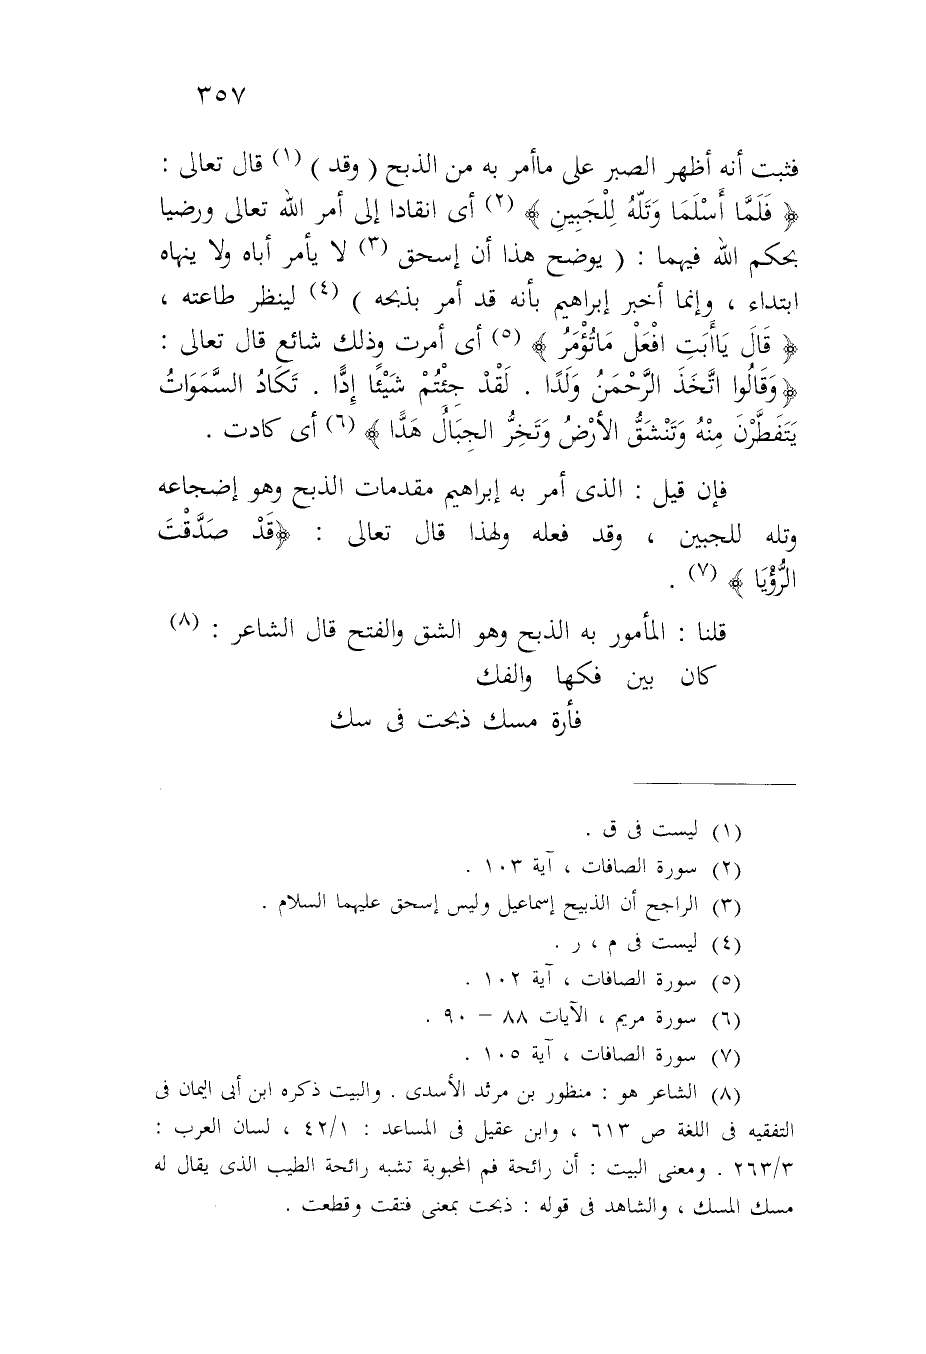 ٣٥٧
فثبت أنه أظهر الصبر على ماأمر به من الذبح ( وقد ) (١) قال تعالى :
﴿ فَلَمَّا أَسْلَمَا وَتَلَّهُ لِلْجَبِينِ ﴾ (٢) أى انقادا إلى أمر الله تعالى ورضيا
بحكم الله فيهما : ( يوضح هذا أن إسحق (٣) لا يأمر أباه ولا ينهاه
ابتداء ، وإنما أخبر إبراهيم بأنه قد أمر بذبحه ) (٤) لينظر طاعته ،
﴿ قَالَ يَاأَبَتِ افْعَلْ مَاتُؤْمَرُ ﴾ (٥) أى أمرت وذلك شائع قال تعالى :
﴿وَقَالُوا اتَّخَذَ الرَّحْمَنُ وَلَدًا . لَقْدْ جِئْتُمْ شَيْئًا إِدًّا . تَكَادُ السَّمَوَاتُ
يَتَفَطَّرْنَ مِنْهُ وَتَنْشَقُّ الأَرْضُ وَتَخِرُّ الجِبَالُ هَدًّا ﴾ (٦) أى كادت .
فإن قيل : الذى أمر به إبراهيم مقدمات الذبح وهو إضجاعه
وتله للجبين ، وقد فعله ولهذا قال تعالى : ﴿قَدْ صَدَّقْتَ
الرُّؤْيَا ﴾ (٧) .
قلنا : المأمور به الذبح وهو الشق والفتح قال الشاعر : (٨)
كان بين فكها والفك
فأرة مسك ذبحت فى سك
(١) ليست فى ق .
(٢) سورة الصافات ، آية ١٠٣ .
(٣) الراجح أن الذبيح إسماعيل وليس إسحق عليهما السلام .
(٤) ليست فى م ، ر .
(٥) سورة الصافات ، آية ١٠٢ .
(٦) سورة مريم ، الآيات ٨٨ – ٩٠ .
(٧) سورة الصافات ، آية ١٠٥ .
(٨) الشاعر هو : منظور بن مرثد الأسدى . والبيت ذكره ابن أبى اليمان فى
التفقيه فى اللغة ص ٦١٣ ، وابن عقيل فى المساعد : ٤٢/١ ، لسان العرب :
٢٦٣/٣ . ومعنى البيت : أن رائحة فم المحبوبة تشبه رائحة الطيب الذى يقال له
مسك المسك ، والشاهد فى قوله : ذبحت بمعنى فتقت وقطعت .